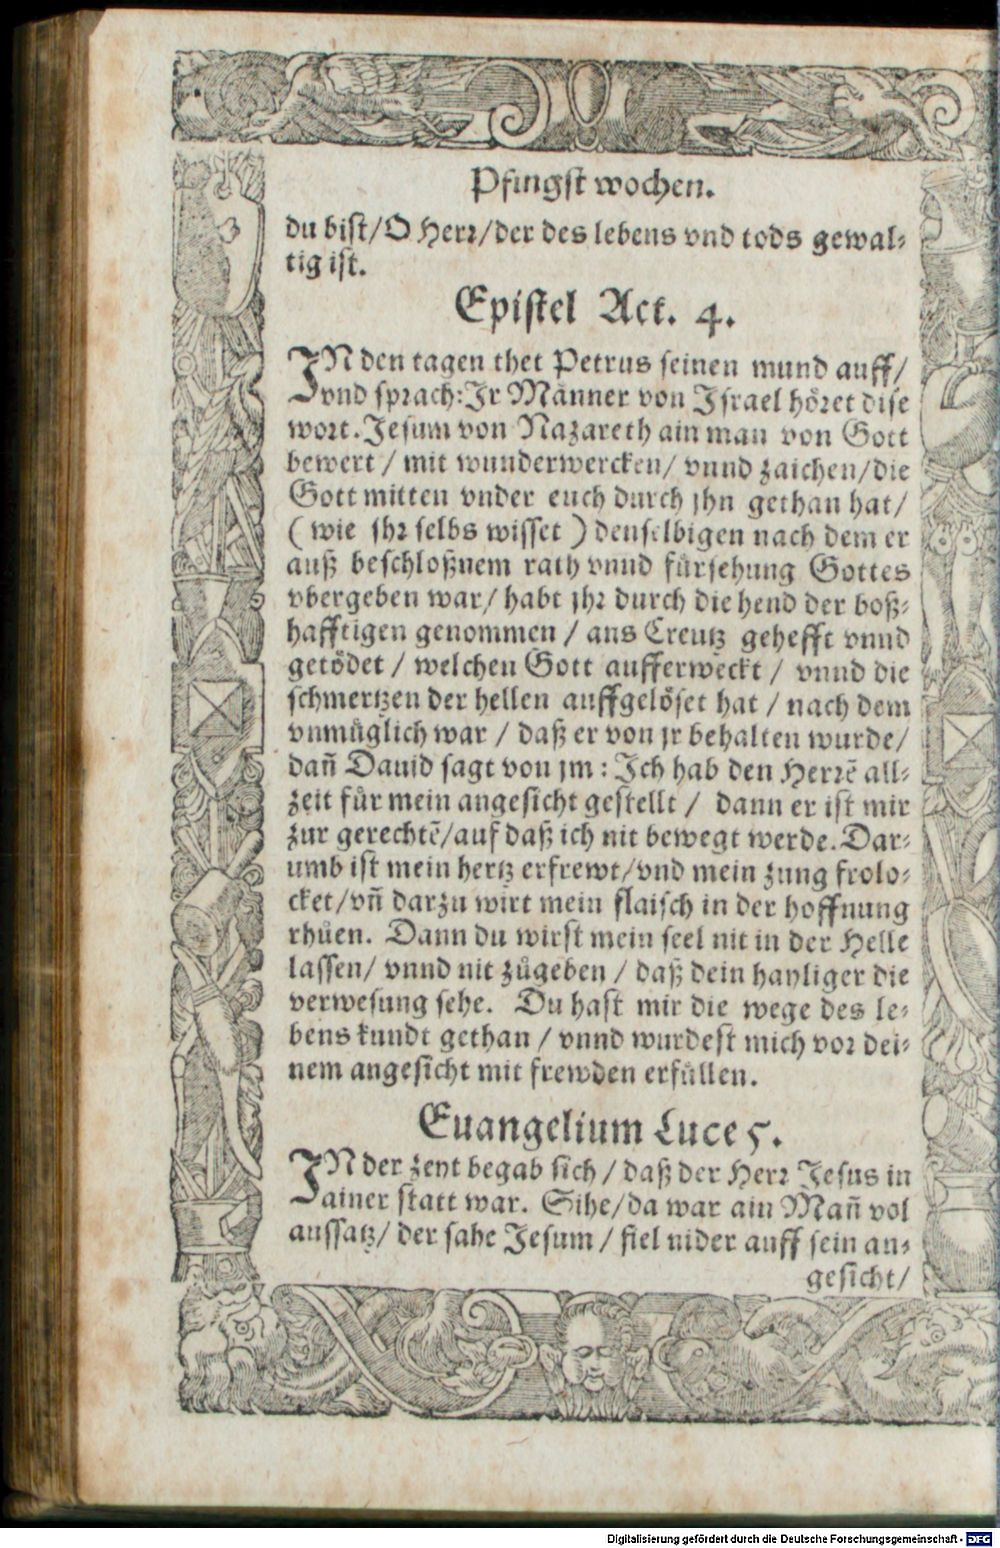 Pfingst wochen.
du bist/ O Herr/ der des lebens vnd tods gewal-
tig ist.
Epistel Act. 4.
IN den tagen thet Petrus seinen mund auff/
vnd sprach: Ir Männer von Israel höret dise
wort. Jesum von Nazareth ain man von Gott
bewert / mit wunderwercken/ vnnd zaichen/ die
Gott mitten vnder euch durch jhn gethan hat/
( wie jhr selbs wisset ) denselbigen nach dem er
auß beschloßnem rath vnnd fürsehung Gottes
vbergeben war/ habt jhr durch die hend der boß-
hafftigen genommen / ans Creutz gehefft vnnd
getödet / welchen Gott aufferweckt / vnnd die
schmertzen der hellen auffgelöset hat / nach dem
vnmüglich war / daß er von jr behalten wurde/
dañ Dauid sagt von jm : Ich hab den Herrẽ all-
zeit für mein angesicht gestellt / dann er ist mir
zur gerechtẽ/ auf daß ich nit bewegt werde. Dar-
umb ist mein hertz erfrewt/ vnd mein zung frolo-
cket/ vñ darzu wirt mein flaisch in der hoffnung
rhůen. Dann du wirst mein seel nit in der Helle
lassen/ vnnd nit zůgeben / daß dein hayliger die
verwesung sehe. Du hast mir die wege des le-
bens kundt gethan / vnnd wurdest mich vor dei-
nem angesicht mit frewden erfüllen.
Euangelium Luce 5.
IN der zeyt begab sich / daß der Herr Jesus in
ainer statt war. Sihe/ da war ain Mañ vol
aussatz/ der sahe Jesum / fiel nider auff sein an-
gesicht/
Digitalisierung gefördert durch die Deutsche Forschungsgemeinschaft - DFG